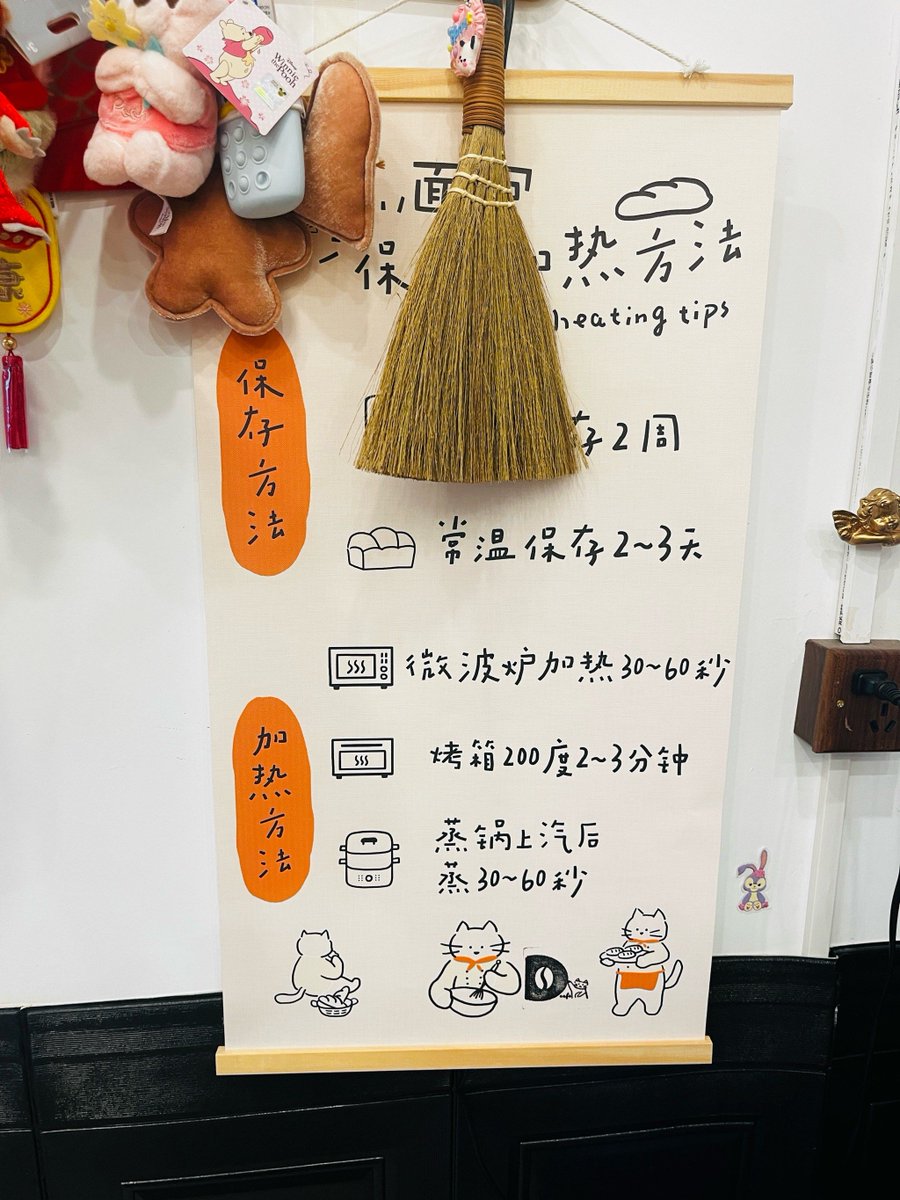 Winnie the Pooh
面包
保 加热方法
heating tips
保存方法
存2周
常温保存2~3天
加热方法
微波炉加热30~60秒
烤箱200度2~3分钟
蒸锅上汽后
蒸30~60秒